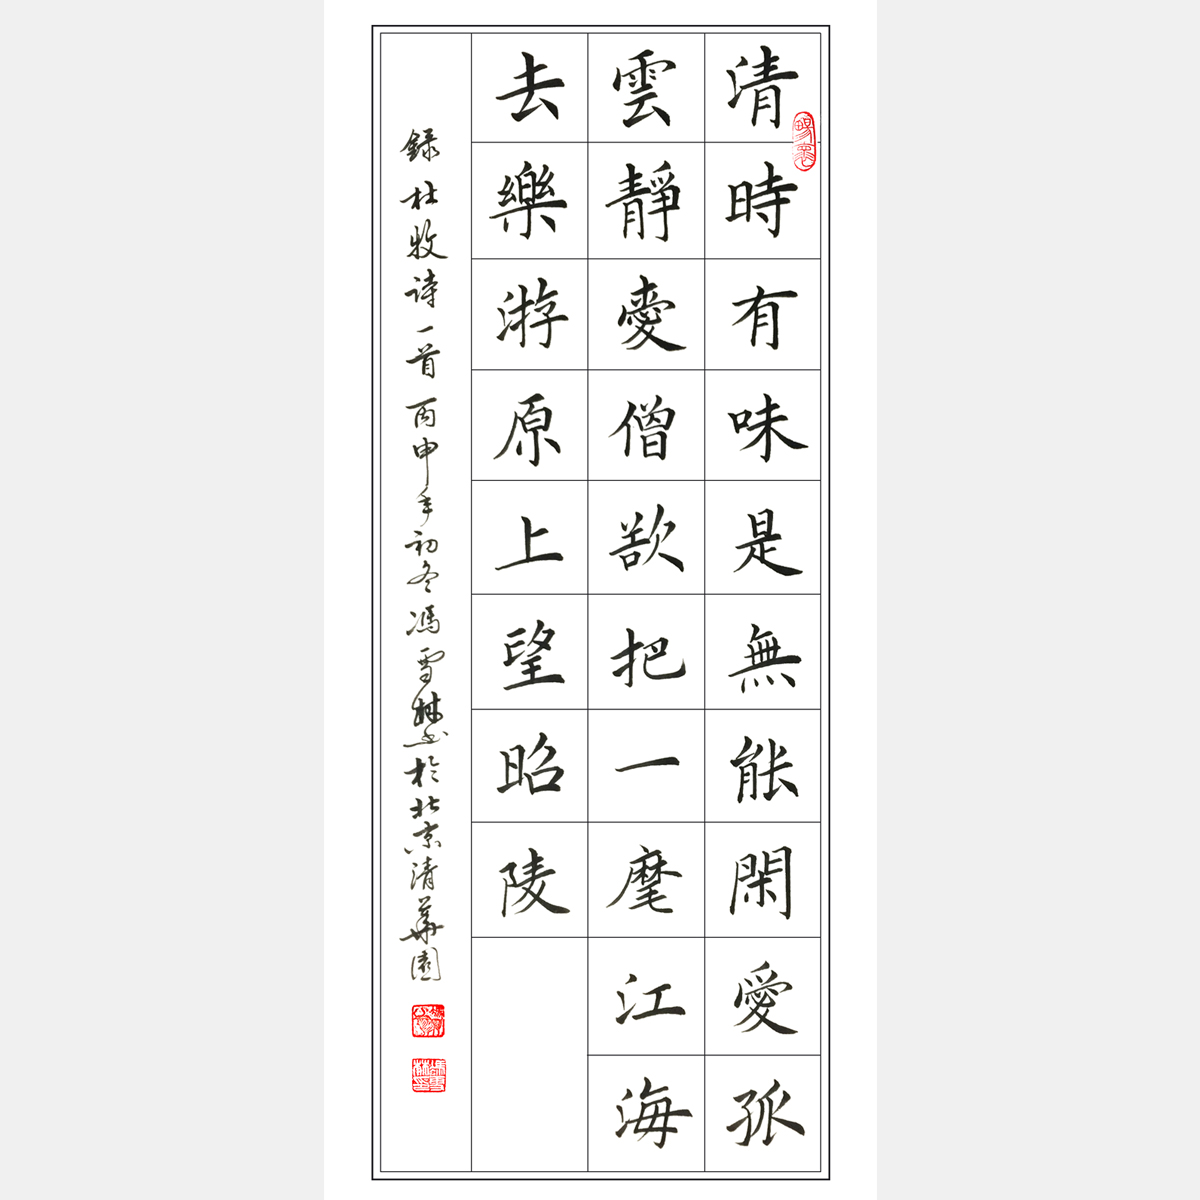 清時有味是無能閑愛孤
雲靜愛僧欲把一麾江海
去樂游原上望昭陵
録杜牧诗一首丙申年初冬馮雪林书於北京清華園